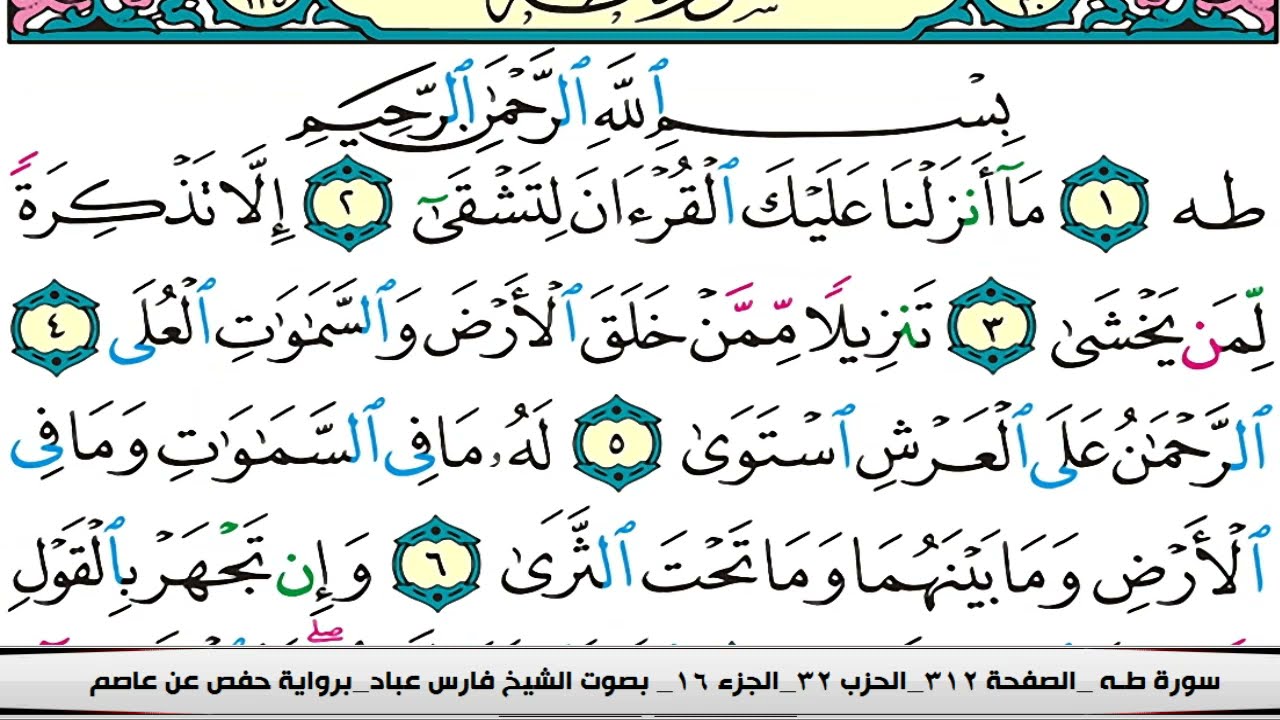 بِسْمِ ٱللَّهِ ٱلرَّحْمَٰنِ ٱلرَّحِيمِ
طه ١ مَآ أَنزَلْنَا عَلَيْكَ ٱلْقُرْءَانَ لِتَشْقَىٰٓ ٢ إِلَّا تَذْكِرَةً
لِّمَن يَخْشَىٰ ٣ تَنزِيلًا مِّمَّنْ خَلَقَ ٱلْأَرْضَ وَٱلسَّمَٰوَٰتِ ٱلْعُلَى ٤
ٱلرَّحْمَٰنُ عَلَى ٱلْعَرْشِ ٱسْتَوَىٰ ٥ لَهُۥ مَا فِى ٱلسَّمَٰوَٰتِ وَمَا فِى
ٱلْأَرْضِ وَمَا بَيْنَهُمَا وَمَا تَحْتَ ٱلثَّرَىٰ ٦ وَإِن تَجْهَرْ بِٱلْقَوْلِ
سورة طـه _الصفحة ٣١٢_الحزب ٣٢_الجزء ١٦_ بصوت الشيخ فارس عباد_برواية حفص عن عاصم